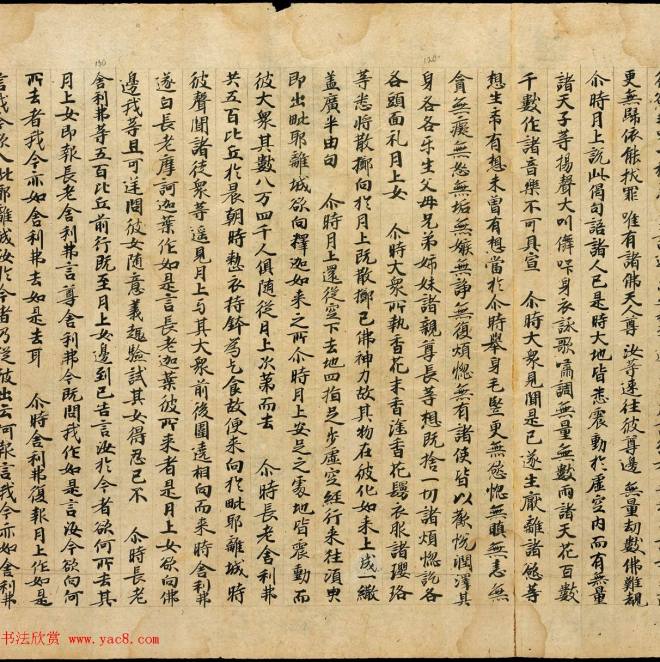 更無歸依能救罪 唯有諸佛天人尊 汝等速往彼尊邊 無量劫數佛難覩
尒時月上說此偈句語諸人已是時大地皆悉震動於虛空內而有無量
諸天子等揚聲大叫儛 身衣詠歌嘯調無量無數雨諸天花百數
千數作諸音樂不可具宣 尒時大衆見聞是已遂生厭離諸慾等
想生希有想未曾有想當於尒時舉身毛竪更無慾惱無瞋無恚無
貪無癡無忿無垢無嫉無諍無復煩惱無有諸使皆以歡悅潤澤其
身各各樂生父母兄弟姊妹諸親尊長等想既捨一切諸煩惱訖各
各頭面礼月上女 尒時大衆所執香花末香塗香花鬘衣服諸瓔珞
等悉將散擲向於月上既散擲已佛神力故其物在彼化如來上成一繖
盖廣半由旬 尒時月上還從空下去地四指足步虛空經行來往須臾
即出毗耶離城欲向釋迦如來之所尒時月上安足之處地皆震動而
彼大衆其數八万四千人俱隨從月上次第而去 尒時長老舍利弗
共五百比丘於晨朝時整衣持鉢為乞食故便來向於毗耶離城時
彼聲聞諸徒衆等遥見月上与其大衆前後圍遶相向而來時舍利弗
遂白長老摩訶迦葉作如是言長老迦葉彼所來者是月上女欲向佛
邊我等且可迬問彼女隨意義趣驗試其女得忍已不 尒時長老
舍利弗等五百比丘前行既至月上女邊到已告言汝於今者欲何所去其
月上女即報長老舍利弗言尊舍利弗今既問我作如是言汝今欲向何
所去者我今亦如舍利弗去如是去耳 尒時舍利弗復報月上作如是
言我今欲入毗耶離城汝於今者乃從彼出云何報言我今亦如舍利弗
130
120
书法欣赏 www.yac8.com